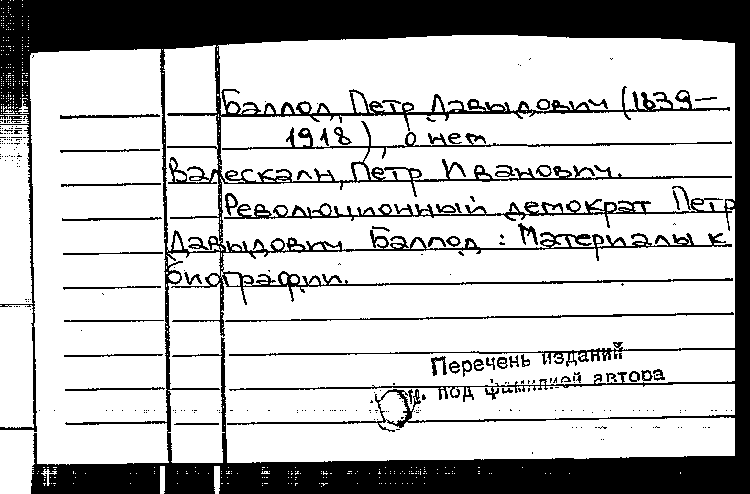 Баллод, Петр Давыдович (1839—
1918), о нем
Валескалн, Петр Иванович.
Революционный демократ Петр
Давыдович Баллод : Материалы к
биографии.
Перечень изданий
см. под фамилией автора